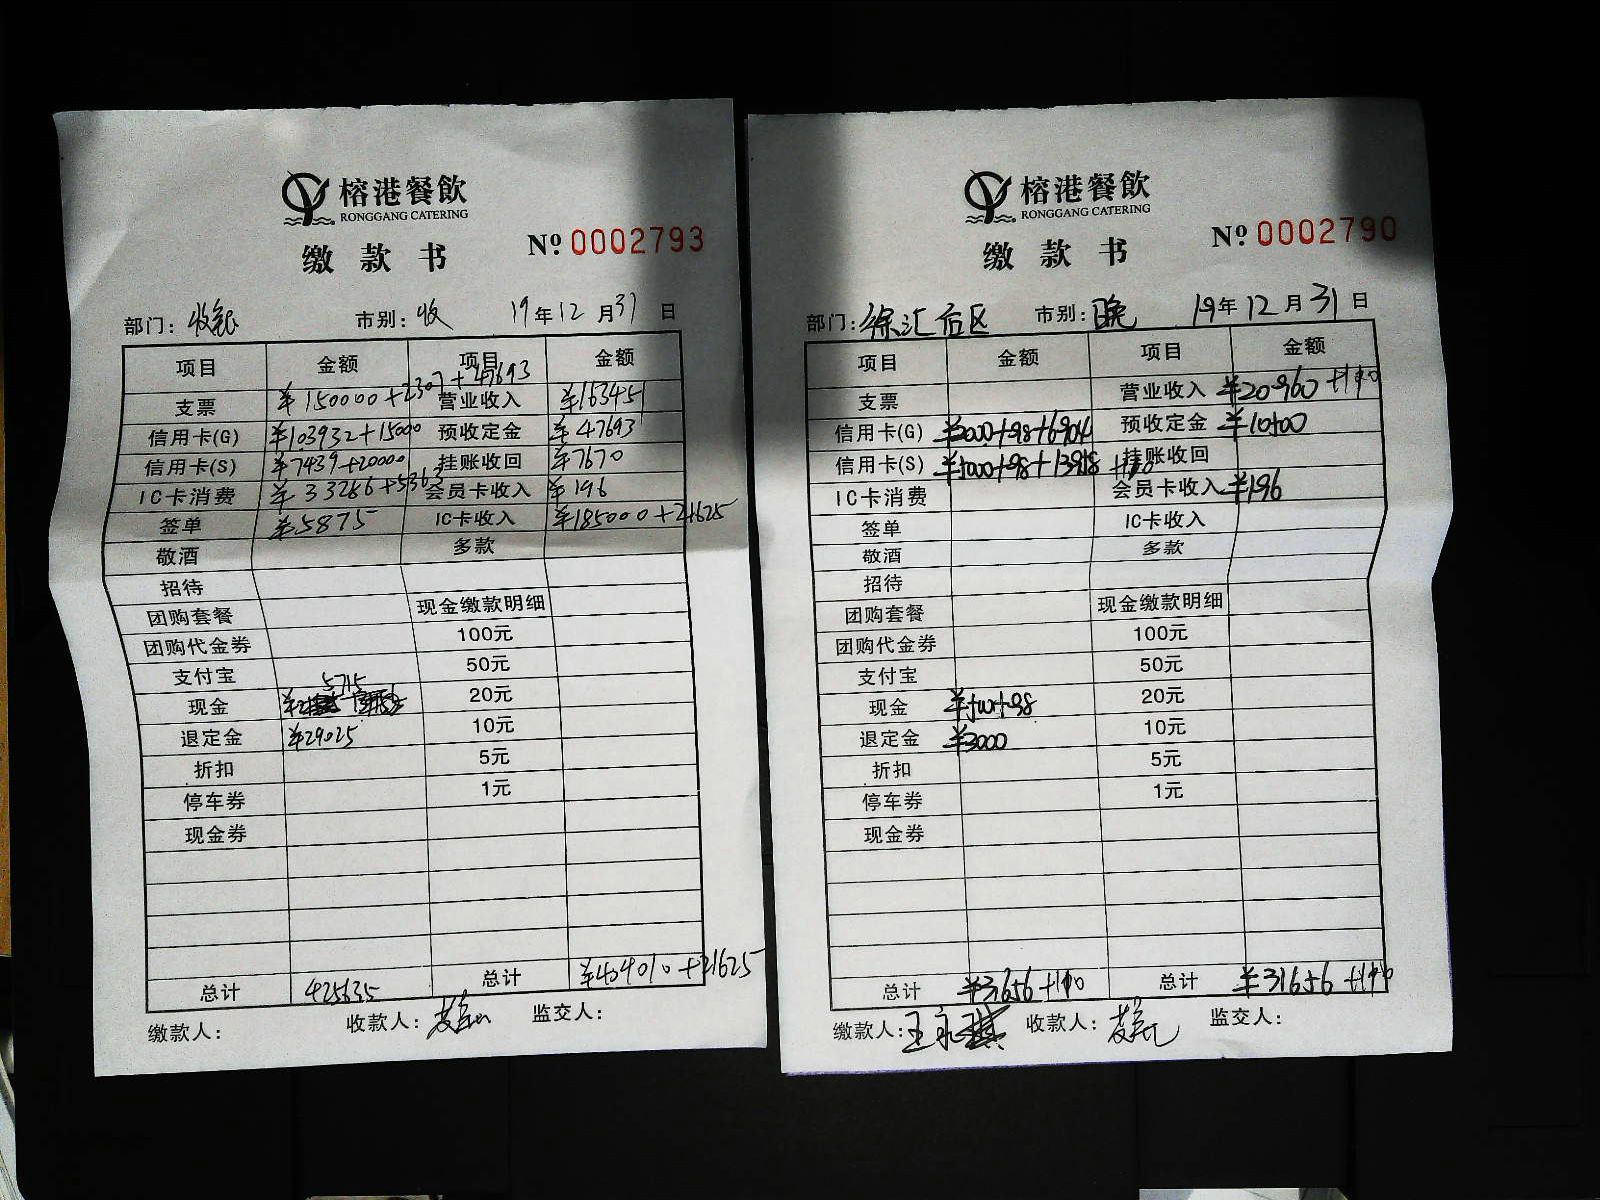 榕港餐飲
RONGGANG CATERING
缴款书
Nº 0002793
部门: 收银 市别: 收 19年12月31日
项目 金额 项目 金额
支票 ¥150000+2307+47693 营业收入 ¥163451
信用卡(G) ¥103932+15000 预收定金 ¥47693
信用卡(S) ¥7439+20000 挂账收回 ¥7670
IC卡消费 ¥33286+5363 会员卡收入 ¥196
签单 ¥5875 IC卡收入 ¥185000+21625
敬酒 多款
招待
团购套餐 现金缴款明细
团购代金券 100元
支付宝 50元
现金 5715 20元
退定金 ¥29025 10元
折扣 5元
停车券 1元
现金券
总计 425635 总计 ¥404010+21625
缴款人: 收款人: 监交人:
榕港餐飲
RONGGANG CATERING
缴款书
Nº 0002790
部门: 徐汇店区 市别: 晚 19年12月31日
项目 金额 项目 金额
支票 营业收入 ¥20960
信用卡(G) ¥3000+98+6904 预收定金 ¥10500
信用卡(S) 挂账收回
IC卡消费 会员卡收入 ¥196
签单 IC卡收入
敬酒 多款
招待
团购套餐 现金缴款明细
团购代金券 100元
支付宝 50元
现金 ¥500+98 20元
退定金 ¥3000 10元
折扣 5元
停车券 1元
现金券
总计 ¥31656 总计 ¥31656
缴款人: 收款人: 监交人: